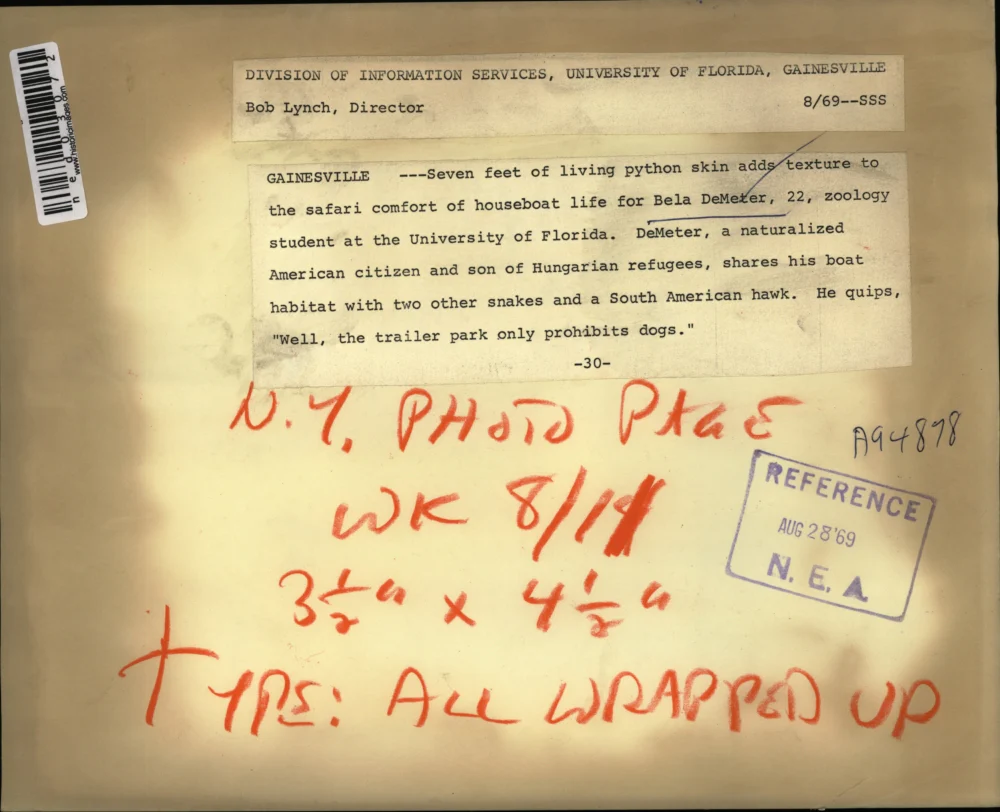 DIVISION OF INFORMATION SERVICES, UNIVERSITY OF FLORIDA, GAINESVILLE
Bob Lynch, Director 8/69--SSS
GAINESVILLE ---Seven feet of living python skin adds texture to
the safari comfort of houseboat life for Bela DeMeter, 22, zoology
student at the University of Florida. DeMeter, a naturalized
American citizen and son of Hungarian refugees, shares his boat
habitat with two other snakes and a South American hawk. He quips,
"Well, the trailer park only prohibits dogs."
-30-
N.Y. PHOTO PAGE
A94878
WK 8/11
REFERENCE
AUG 28 '69
N. E. A.
3 1/2 " x 4 1/2 "
TYPE: ALL WRAPPED UP
www.historicimages.com